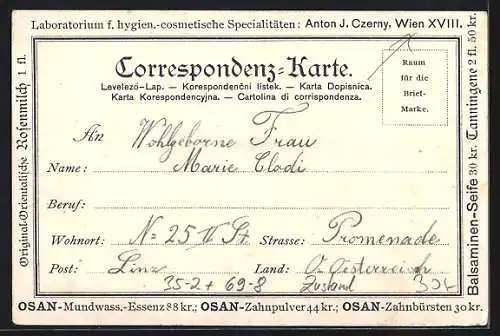 Laboratorium f. hygien.-cosmetische Specialitäten: Anton J. Czerny, Wien XVIII.
Original-Orientalische Rosenmilch 1 fl.
Tanningene 2 fl. 50 kr.
Balsaminen-Seife 30 kr.
Correspondenz-Karte.
Levelező-Lap. — Korespondenční listek. — Karta Dopisnica.
Karta Korespondencyjna. — Cartolina di corrispondenza.
Raum
für die
Brief-
Marke.
An Wohlgeborne Frau
Name: Marie Clodi
Beruf:
Wohnort: No 25 II St Strasse: Promenade
Post: Linz Land: O. Oesterreich
35-2+ 69-8 Zustand
OSAN-Mundwass.-Essenz 88 kr.; OSAN-Zahnpulver 44 kr.; OSAN-Zahnbürsten 30 kr.